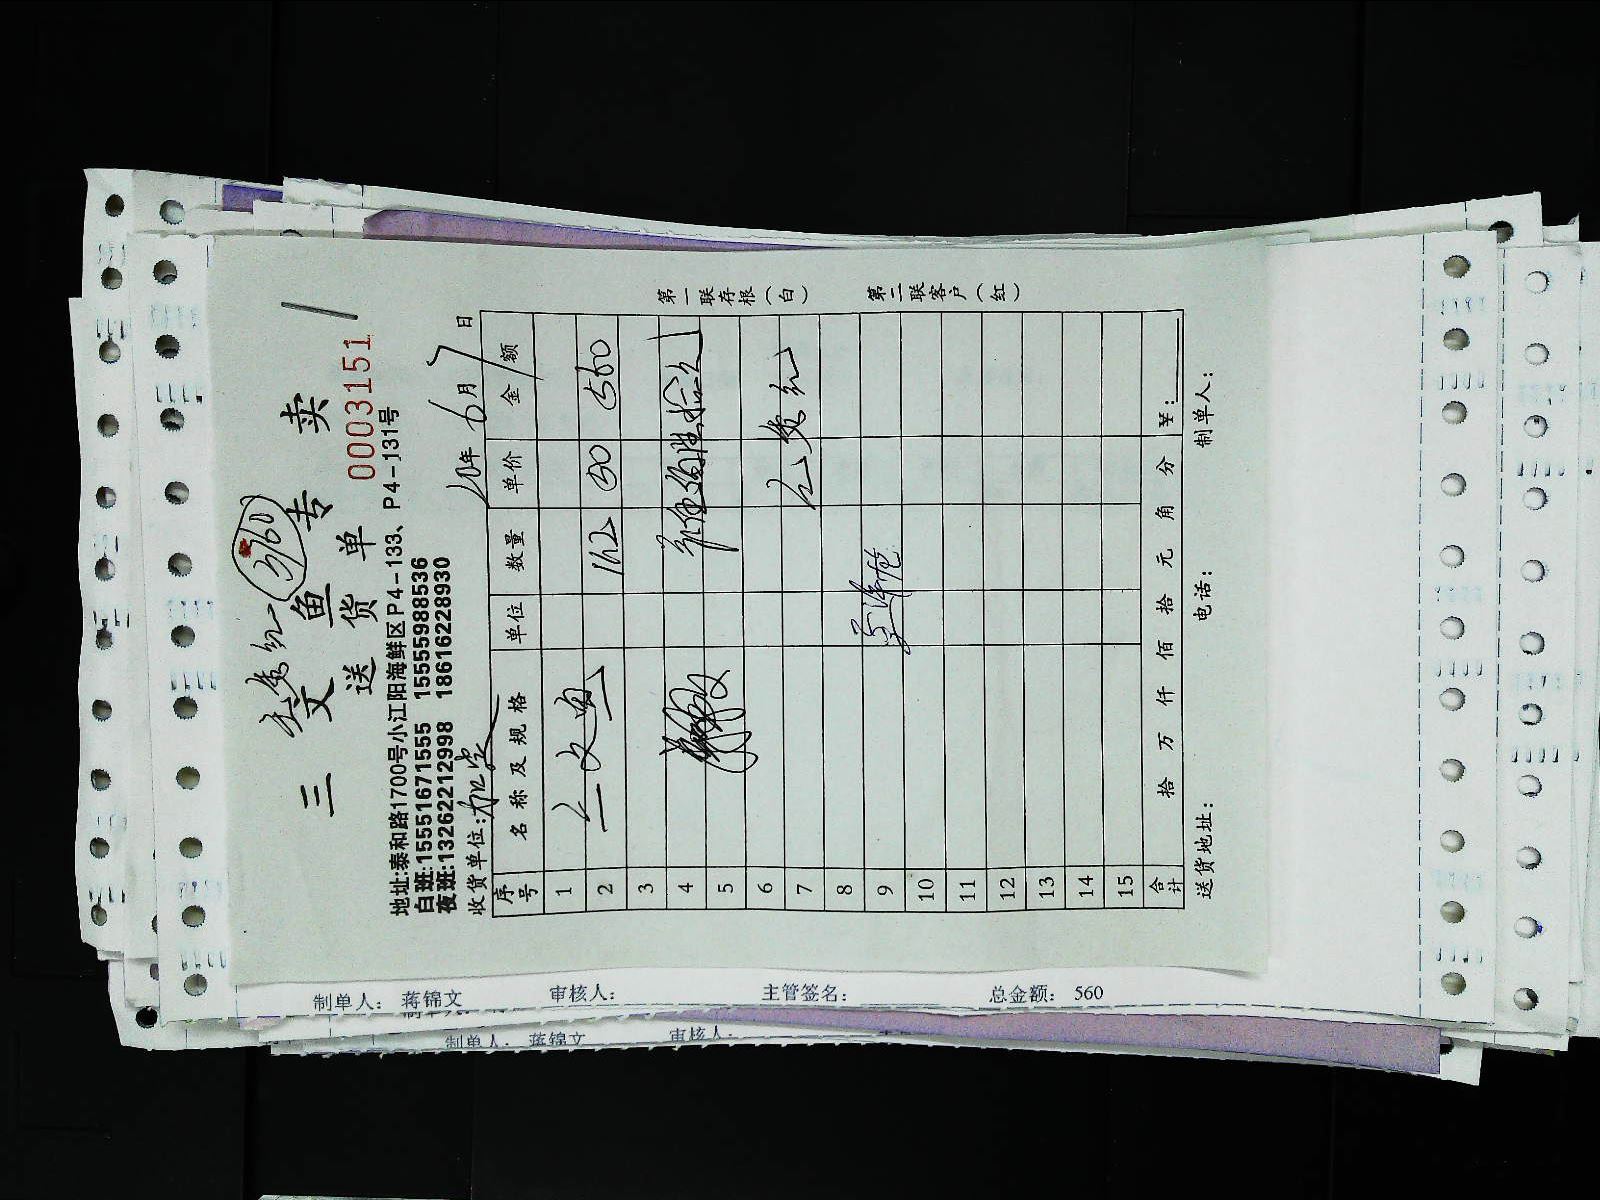 360
三文鱼专卖
送货单
0003151
地址:泰和路1700号小江阳海鲜区P4-133、P4-131号
白班:15551671555 15555988536
夜班:13262212998 18616228930
收货单位: 年 6月 7日
序号 名称及规格 单位 数量 单价 金额
1 三文鱼
2 50 560
3
4
5
6
7
8
9
10
11
12
13
14
15
合计 拾 万 仟 佰 拾 元 角 分 ¥:
送货地址: 电话: 制单人:
第一联存根(白)
第二联客户(红)
制单人: 蒋锦文 审核人: 主管签名: 总金额: 560
制单人: 蒋锦文 审核人: